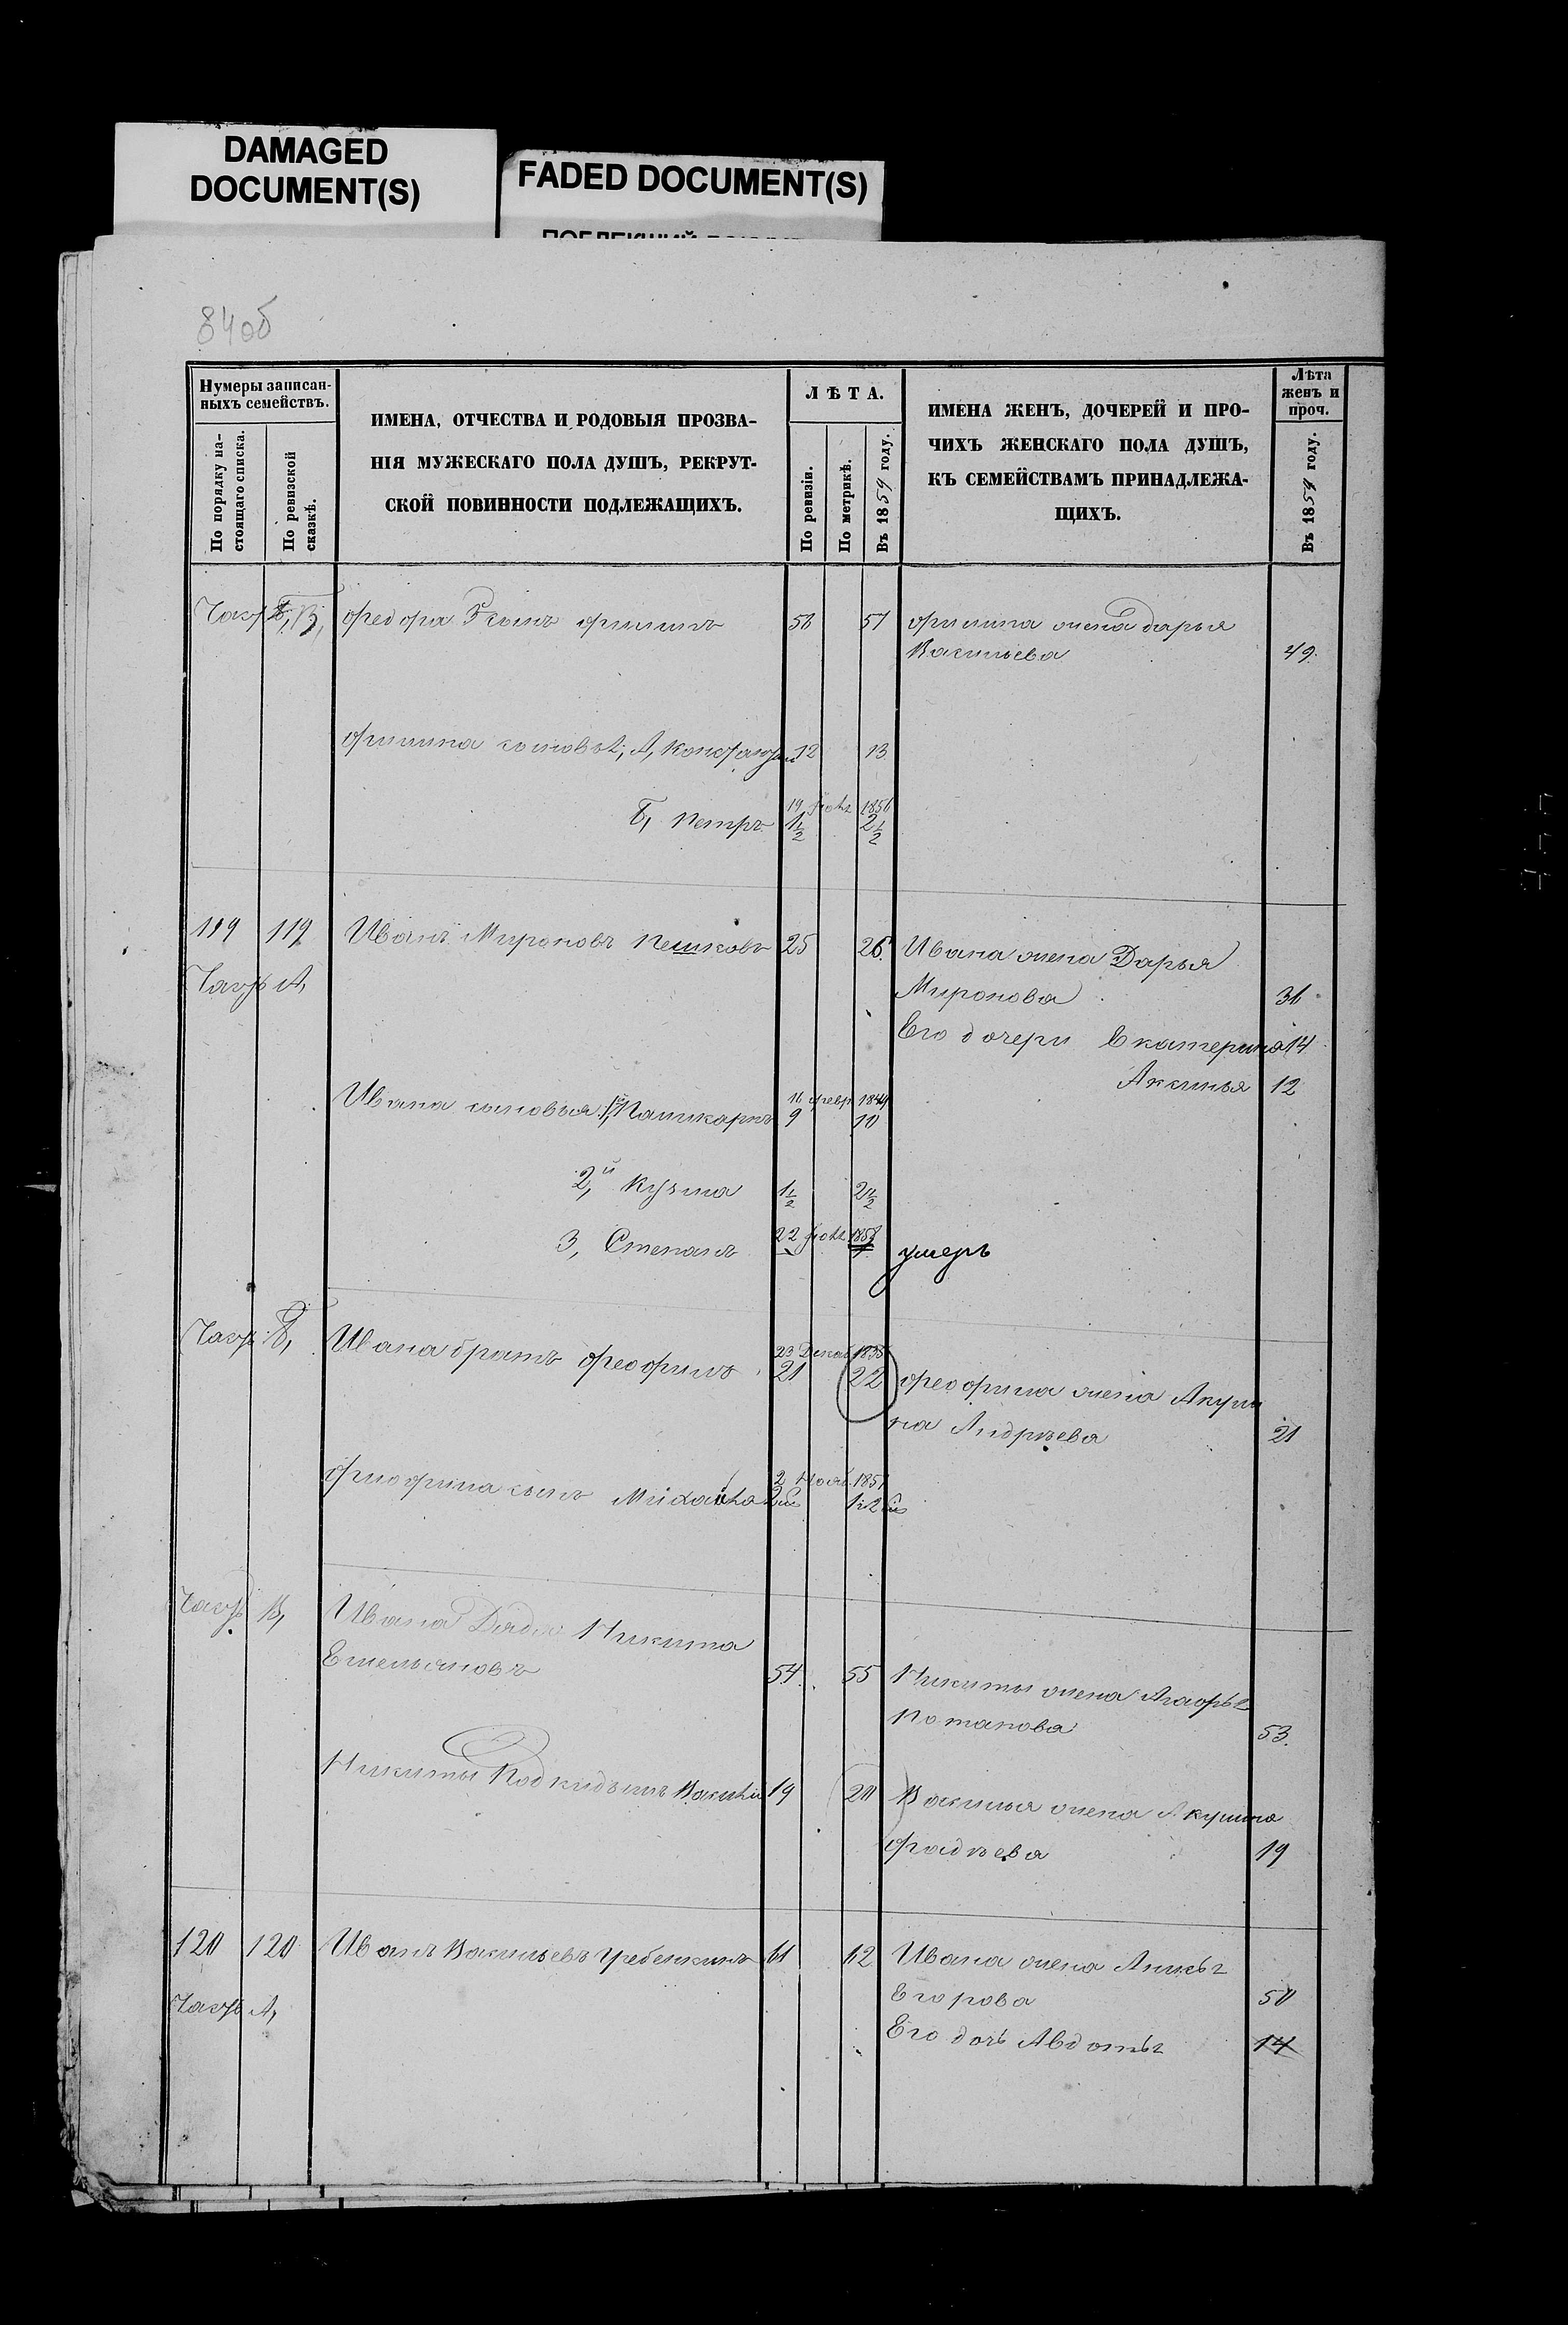 DAMAGED
DOCUMENT(S)
FADED DOCUMENT(S)
84об
Нумеры записан-
ныхъ семействъ.
По порядку на-
стоящаго списка.
По ревизской
сказкѣ.
ИМЕНА, ОТЧЕСТВА И РОДОВЫЯ ПРОЗВА-
НІЯ МУЖЕСКАГО ПОЛА ДУШЪ, РЕКРУТ-
СКОЙ ПОВИННОСТИ ПОДЛЕЖАЩИХЪ.
ЛѢТА.
По ревизіи.
По метрикѣ.
Въ 1859 году.
ИМЕНА ЖЕНЪ, ДОЧЕРЕЙ И ПРО-
ЧИХЪ ЖЕНСКАГО ПОЛА ДУШЪ,
КЪ СЕМЕЙСТВАМЪ ПРИНАДЛЕЖА-
ЩИХЪ.
Лѣта
женъ и
проч.
Въ 1859 году.
В, федора сынъ филипъ 56 57 филипа жена дарья
Васильева 49.
филипа сыновья, А, 12 13
19 1856
Б, Петръ 1½ 2½
119 119 Иванъ Мироновъ Пешковъ 25 26. Ивана жена Дарья
А,
Миронова 31
Его дочери Екатерина 14
Аксинья 12
16 февр 1849
Ивана сыновья 9 10
2й, Кузма 1½ 2½
22
3, Степанъ умеръ
Б, Ивана братъ феофилъ 23 Декаб.
21 22 феофила жена Акули
на Андреева 21
2 Нояб. 1857
феофила сынъ Михайла
В, Ивана Дядя Никита
Емельяновъ 54. 55 Никиты жена Агафья
Потапова 53.
Никиты Подкидышъ Василий 19 20 Василья жена Акулина
фадѣева 19
120 120 Иванъ Васильевъ Гребенкинъ 61 62 Ивана жена
А, Егорова 50
Его дочь Авдотья 14